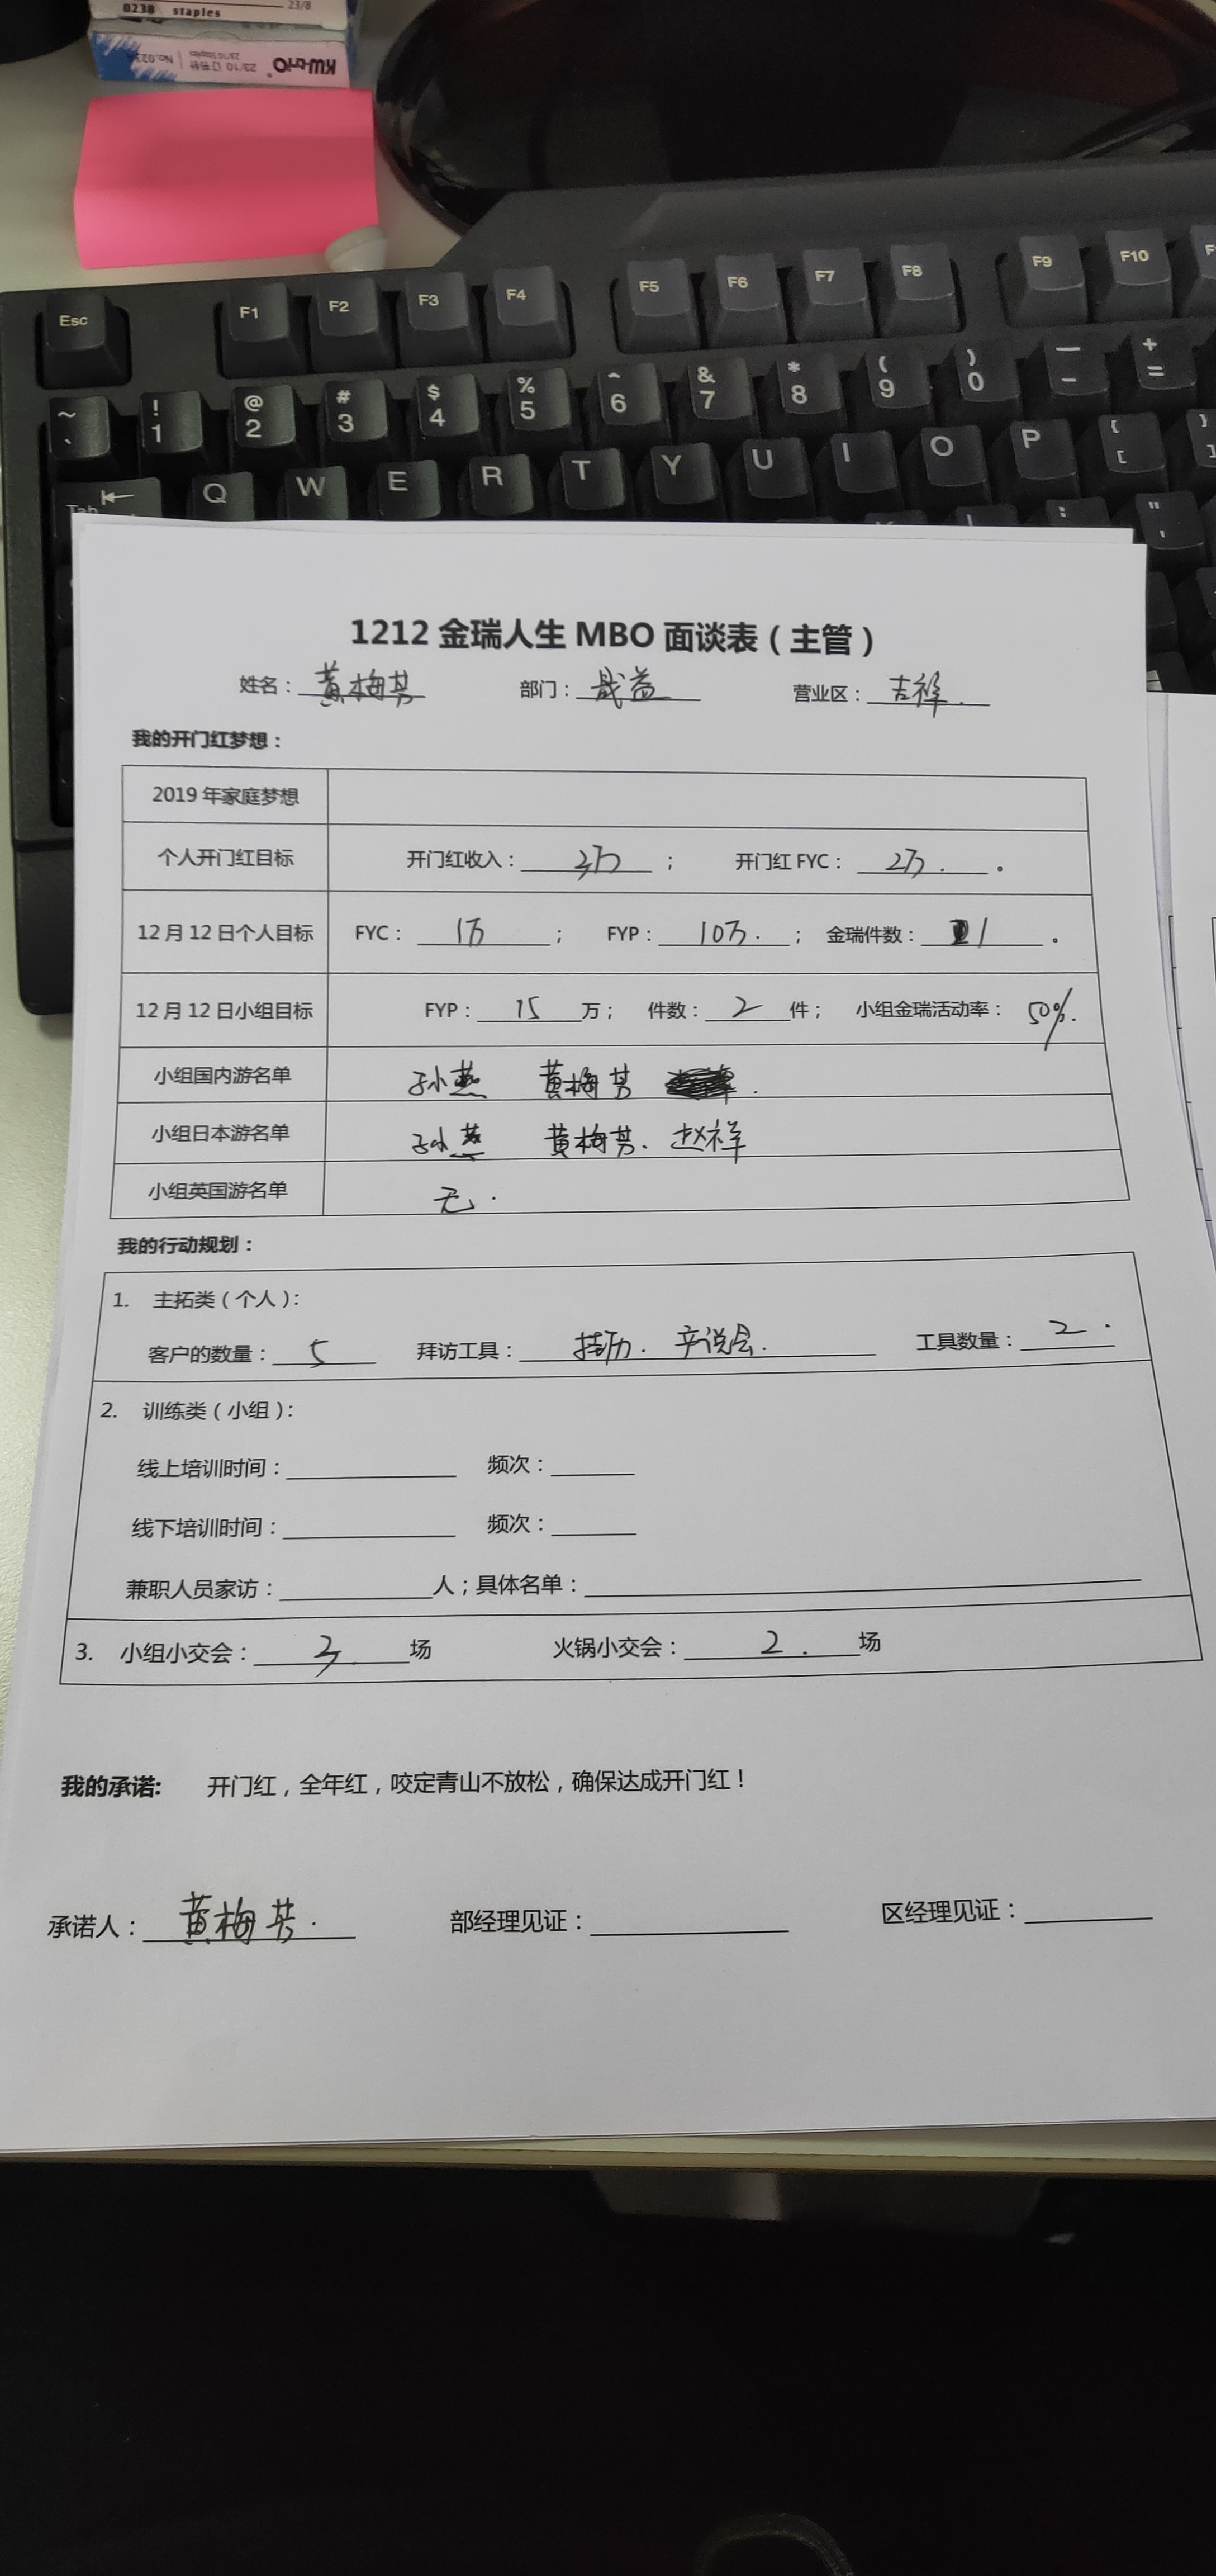 0238 staples 23/8
KW-triO 23/10 订书针 No.023
Esc F1 F2 F3 F4 F5 F6 F7 F8 F9 F10
~ ` ! 1 @ 2 # 3 $ 4 % 5 ^ 6 & 7 * 8 ( 9 ) 0 — - + =
Tab Q W E R T Y U I O P { [ } ]
: " '
1212 金瑞人生 MBO 面谈表（主管）
姓名：黄梅芳 部门：晟益 营业区：吉祥.
我的开门红梦想：
2019 年家庭梦想
个人开门红目标 开门红收入：3万； 开门红 FYC：2万.。
12 月 12 日个人目标 FYC：1万； FYP：10万.； 金瑞件数：1。
12 月 12 日小组目标 FYP：15万； 件数：2件； 小组金瑞活动率：50%.
小组国内游名单 孙燕 黄梅芳
小组日本游名单 孙燕 黄梅芳. 赵祥
小组英国游名单 无.
我的行动规划：
1. 主拓类（个人）：
客户的数量：5 拜访工具：挂历. 产说会. 工具数量：2.
2. 训练类（小组）：
线上培训时间：________ 频次：____
线下培训时间：________ 频次：____
兼职人员家访：________人；具体名单：________
3. 小组小交会：3场 火锅小交会：2.场
我的承诺: 开门红，全年红，咬定青山不放松，确保达成开门红！
承诺人：黄梅芳. 部经理见证：________ 区经理见证：________